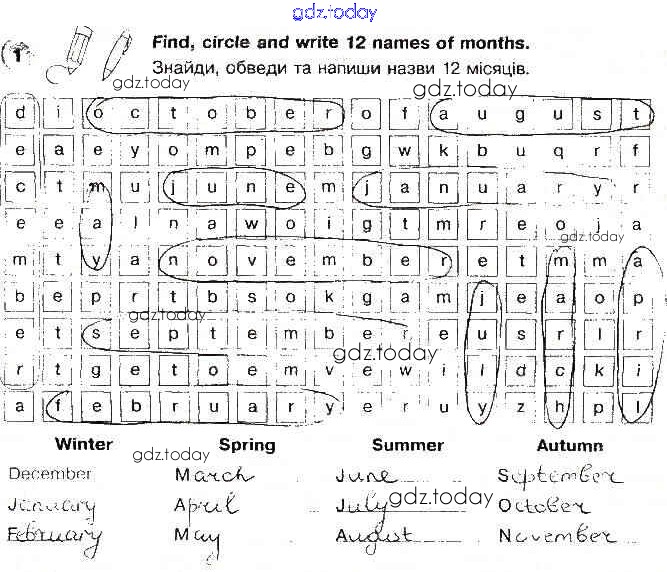 gdz.today
1 Find, circle and write 12 names of months.
Знайди, обведи та напиши назви 12 місяців.
gdz.today gdz.today
d i o c t o b e r o f a u g u s t
e a e y o m p e b g w k b u q r f
c t m u j u n e m j a n u a r y r
e e a l n a w o i g t m r e o j a
gdz.today
m t y a n o v e m b e r e t m m a
b e p r t b s o k g a m j e a o p
gdz.today
e t s e p t e m b e r e u s r l r
gdz.today
r t g e t o e m v e w i l d c k i
a f e b r u a r y e r u y z h p l
Winter Spring Summer Autumn
gdz.today
December March June September
January April July October
gdz.today
February May August November